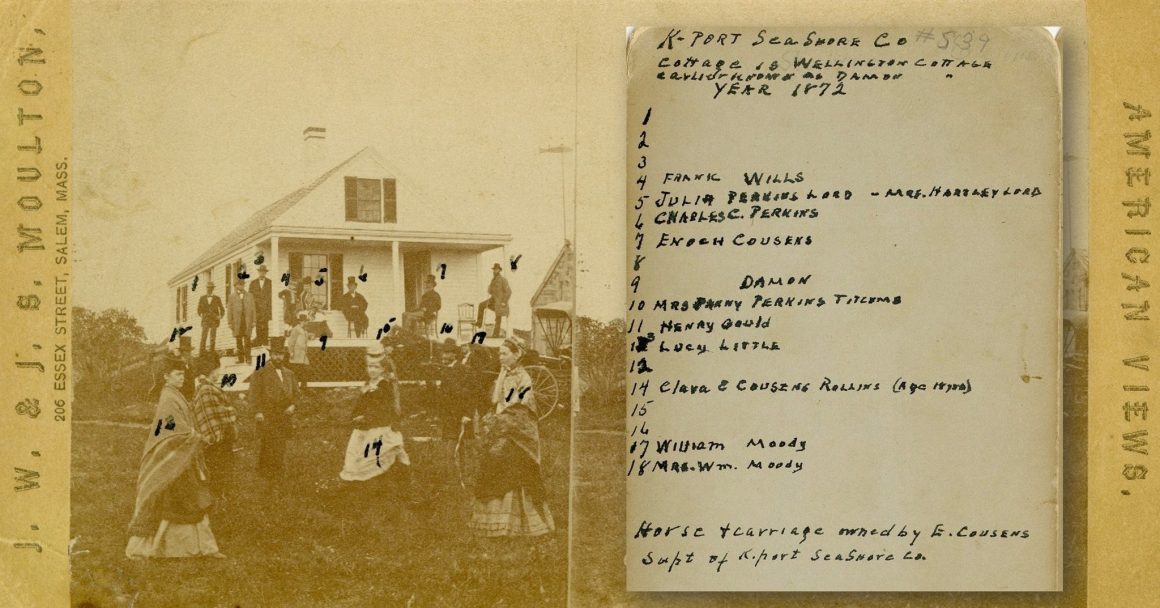 J. W. & J. S. MOULTON,
206 ESSEX STREET, SALEM, MASS.
1 2 3 4 5 6 7 8
9
12 15 16 17
10 11
13 14 18
K-PORT SEASHORE CO #539
COTTAGE IS WELLINGTON COTTAGE
EARLIER KNOWN AS DAMON "
YEAR 1872
1
2
3
4 FRANK WILLS
5 JULIA PERKINS LORD - MRS. HARTLEY LORD
6 CHARLES C. PERKINS
7 ENOCH COUSENS
8
9 DAMON
10 MRS FANNY PERKINS TITCOMB
11 HENRY Gould
13 LUCY LITTLE
12
14 Clara E COUSENS ROLLINS
15
16
17 William Moody
18 MRS. Wm. Moody
Horse + carriage owned by E. COUSENS
Supt of K.port SEASHORE Co.
AMERICAN VIEWS.